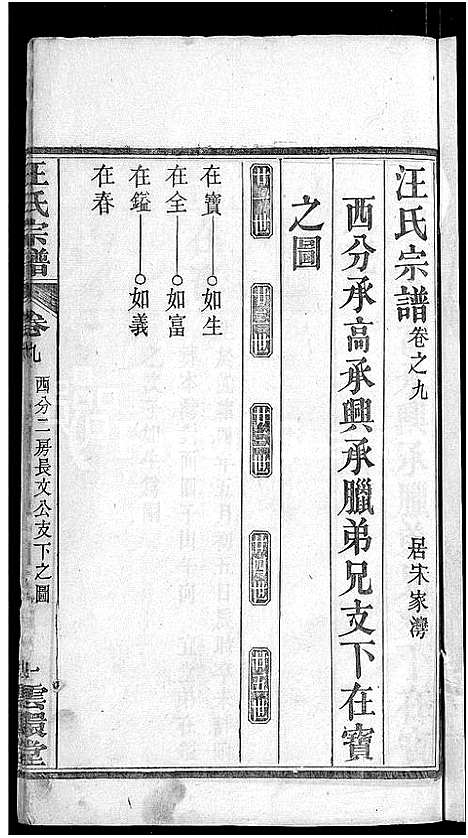 汪氏宗譜 卷之九 居宋家灣
西分承高承興承臘弟兄支下在寶
之圖
廿一世 廿二世 廿三世 廿四世 廿五世
在寶 如生
在全 如富
在鎰 如義
在春
汪氏宗譜 卷九 西分二房長文公支下之圖 雲環堂